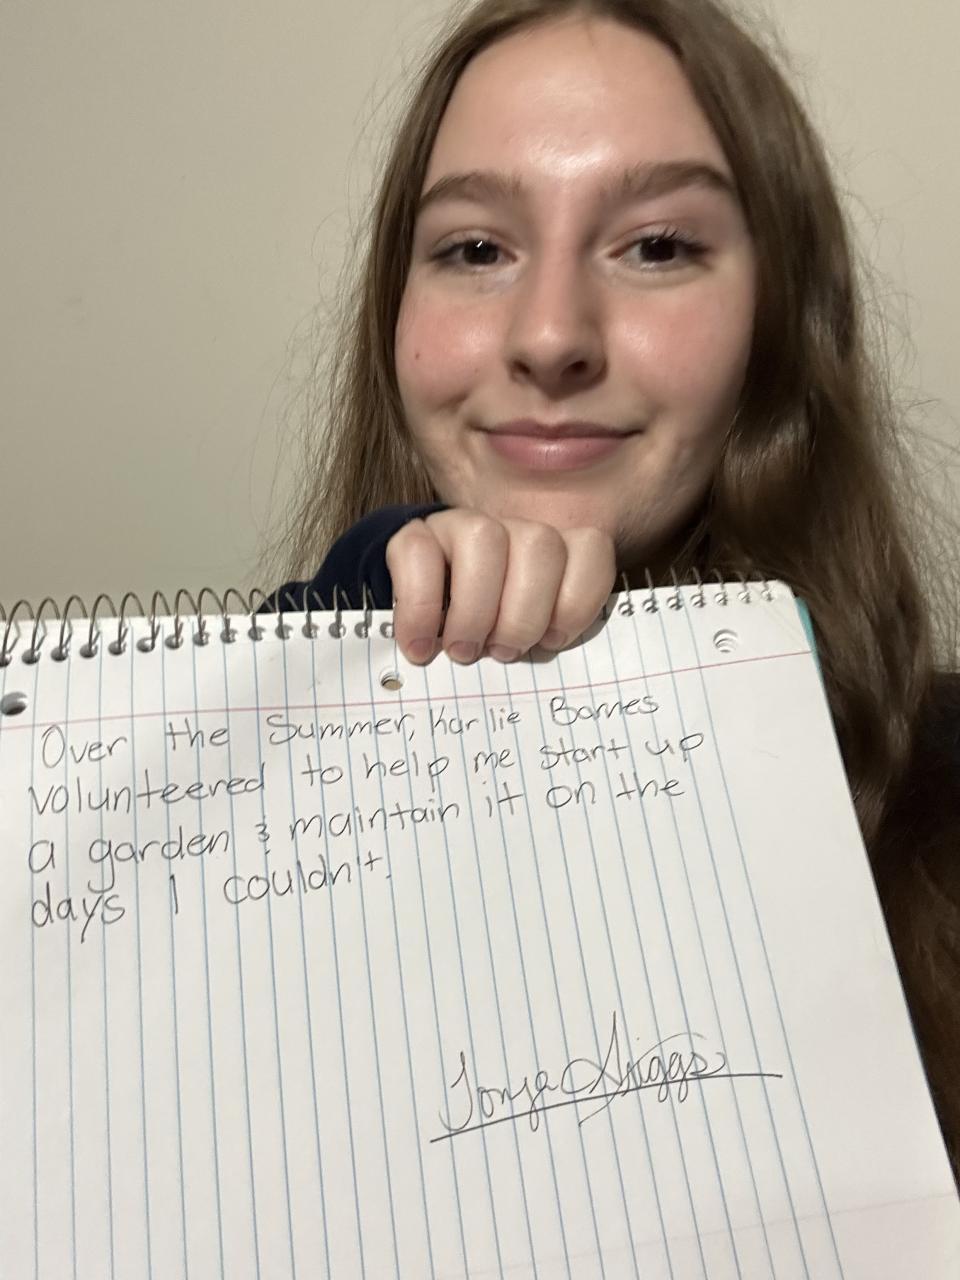 Over the Summer, Karlie Barnes
volunteered to help me start up
a garden & maintain it on the
days I couldn't.
Tonya Griggs